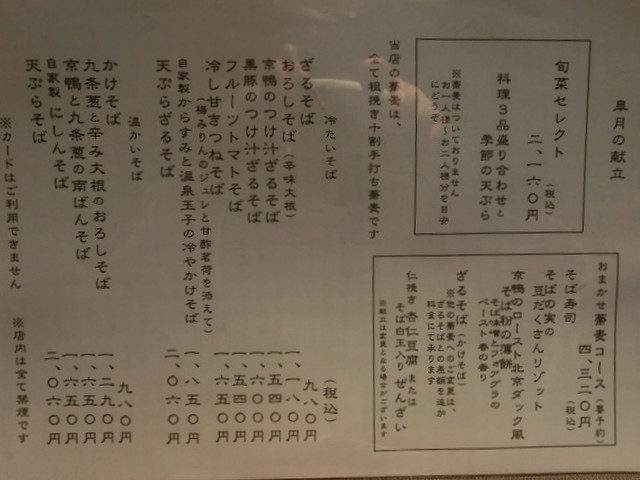 皐月の献立
旬菜セレクト
(税込)
二、一六〇円
料理3品盛り合わせと
季節の天ぷら
※蕎麦はついておりません
お一人様〜お二人様分を目安
にどうぞ
おまかせ蕎麦コース(要予約)
四、三二〇円
(税込)
そば寿司
そばの実の
豆だくさんリゾット
京鴨のロースト北京ダック風
そば粉の薄餅
そば味噌とフォアグラの
ペースト 春の香り
ざるそば(かけそば)
※他の蕎麦へのご変更は、
ざるそばとの差額を追加
料金にて承ります
仁挽き 杏仁豆腐 または
そば白玉入り ぜんざい
※献立は変更となる場合がございます
当店の蕎麦は、
全て粗挽き十割手打ち蕎麦です
冷たいそば
(税込)
ざるそば 九八〇円
おろしそば(辛味大根) 一、一八〇円
京鴨のつけ汁ざるそば 一、五四〇円
黒豚のつけ汁ざるそば 一、六〇〇円
フルーツトマトそば 一、五四〇円
冷し甘きつねそば 一、六五〇円
(梅みりんのジュレと甘酢茗荷を添えて)
自家製からすみと温泉玉子の冷やかけそば 一、八五〇円
天ぷらざるそば 二、〇六〇円
温かいそば
かけそば 九八〇円
九条葱と辛み大根のおろしそば 一、二九〇円
京鴨と九条葱の南ばんそば 一、六五〇円
自家製 にしんそば 一、六五〇円
天ぷらそば 二、〇六〇円
※カードはご利用できません
※店内は全て禁煙です